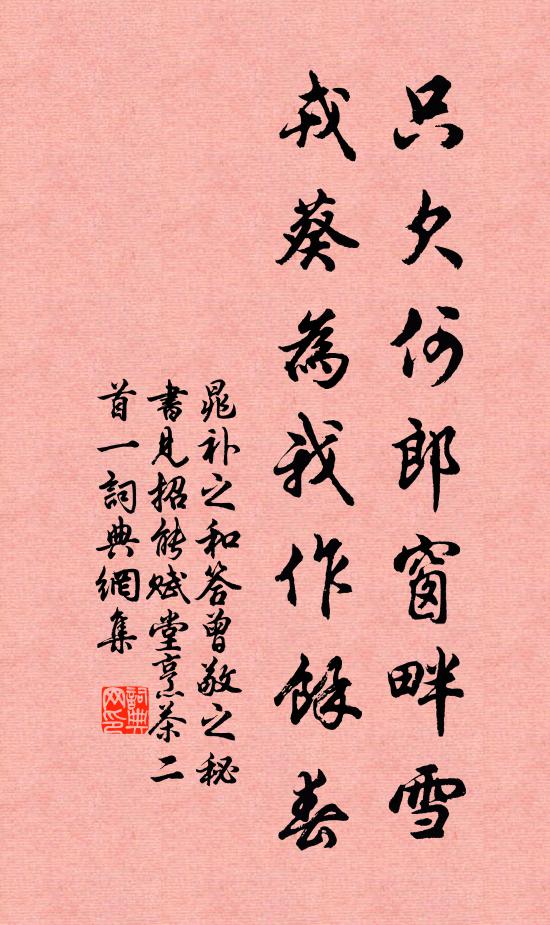 只欠何郎窗畔雪
戎葵為我作餘春
晁补之和答曾敬之秘
書見招能賦堂烹茶二
首一詞典網集
詞典
网印